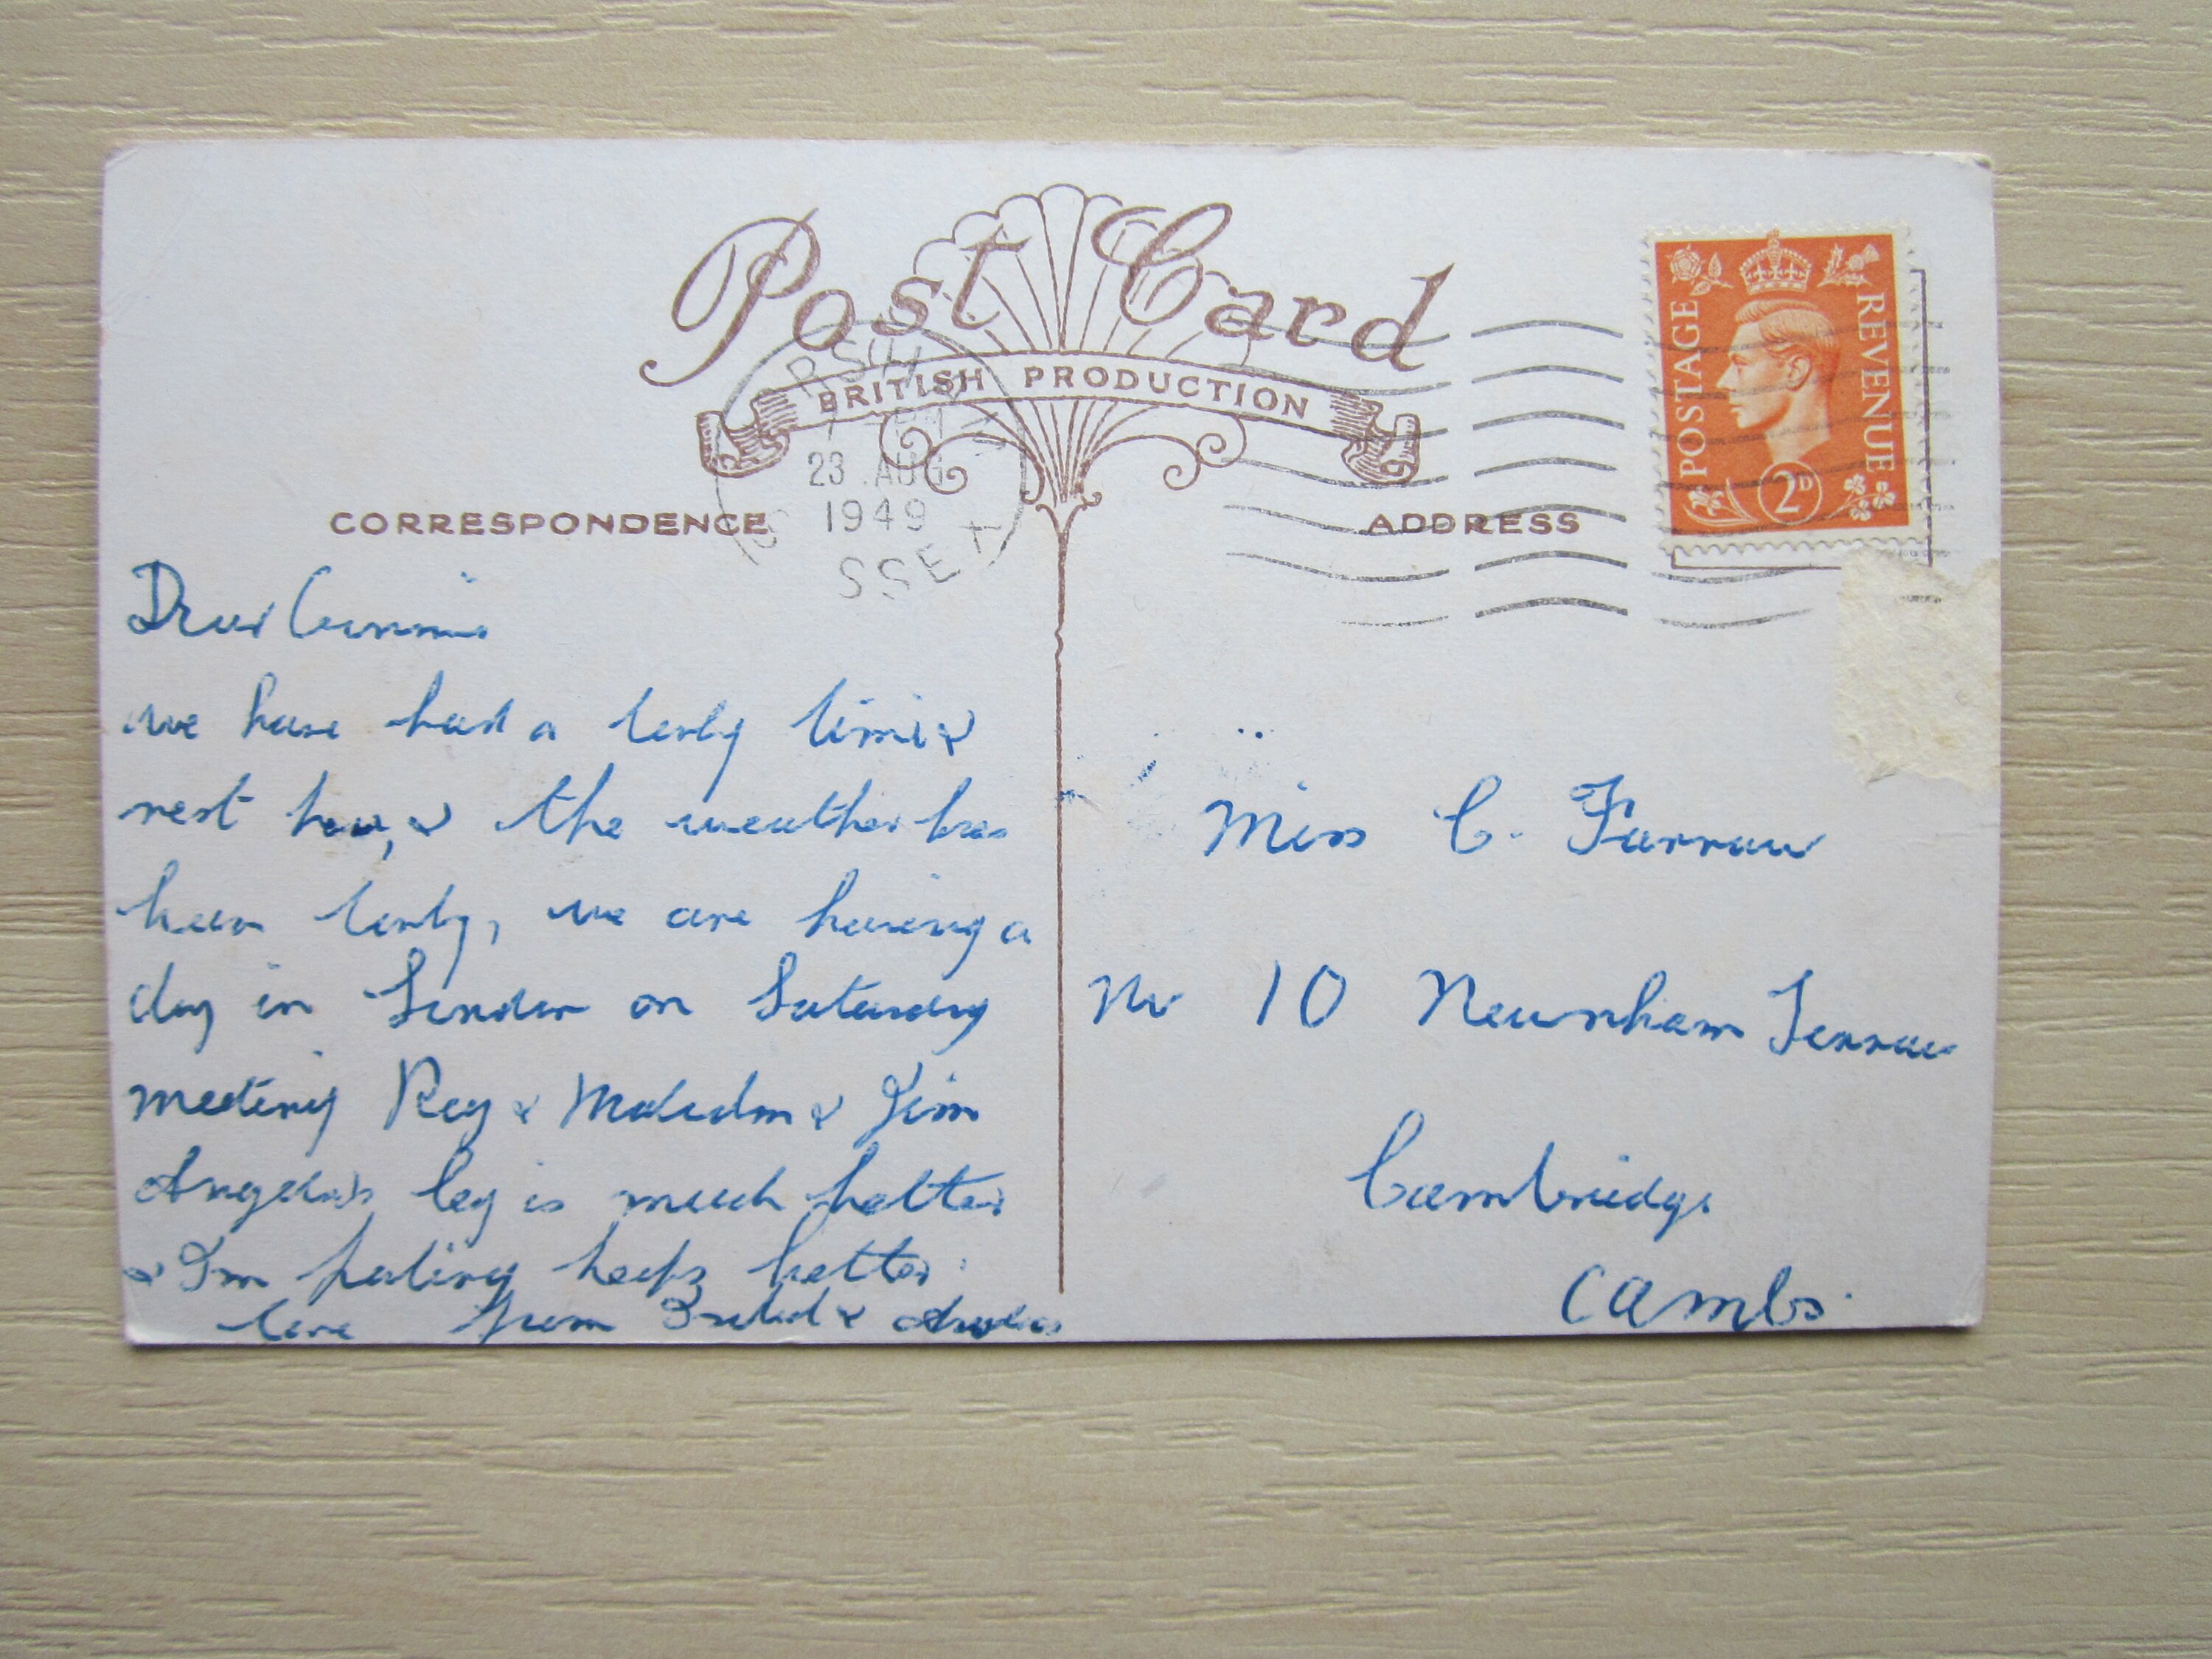 Post Card
BRITISH PRODUCTION
POSTAGE
REVENUE
2D
23 AUG
1949
SSEX
CORRESPONDENCE
ADDRESS
Dear Connie
we have had a lovly time &
rest here, & the weather has
been lovly, we are having a
day in London on Saturday
meeting Reg & Malcolm & Jim
Angela's leg is much better
& Im feeling heaps better
love from &
Miss C. Farrow
No 10 Newnham Terrace
Cambridge
CAMbs.